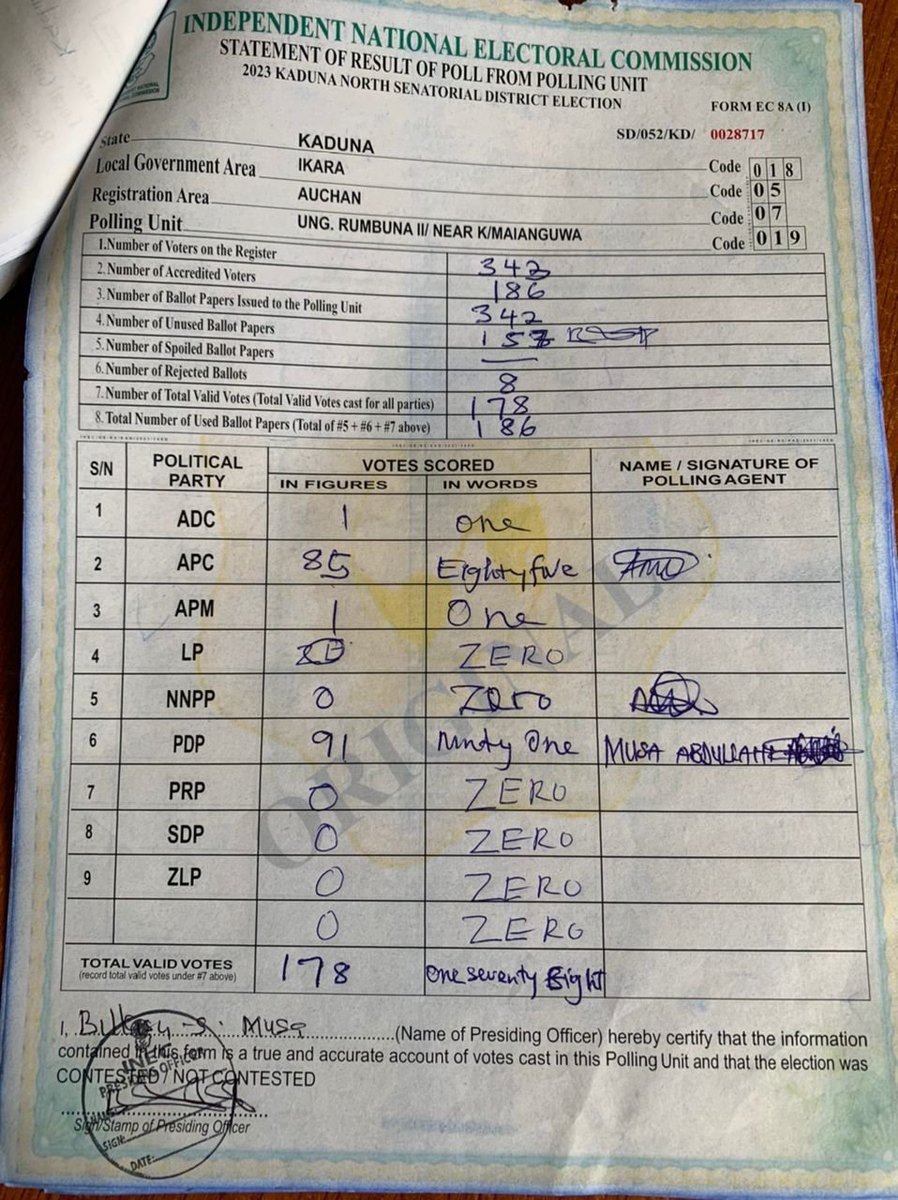 INDEPENDENT NATIONAL ELECTORAL COMMISSION
STATEMENT OF RESULT OF POLL FROM POLLING UNIT
2023 KADUNA NORTH SENATORIAL DISTRICT ELECTION
FORM EC 8A (I)
SD/052/KD/ 0028717
State KADUNA Code 018
Local Government Area IKARA Code 05
Registration Area AUCHAN Code 07
Polling Unit UNG. RUMBUNA II/ NEAR K/MAIANGUWA Code 019
1.Number of Voters on the Register 342
2.Number of Accredited Voters 186
3.Number of Ballot Papers Issued to the Polling Unit 342
4.Number of Unused Ballot Papers
5.Number of Spoiled Ballot Papers —
6.Number of Rejected Ballots 8
7.Number of Total Valid Votes (Total Valid Votes cast for all parties) 178
8.Total Number of Used Ballot Papers (Total of #5 + #6 + #7 above) 186
S/N POLITICAL PARTY VOTES SCORED NAME / SIGNATURE OF POLLING AGENT
IN FIGURES IN WORDS
1 ADC 1 one
2 APC 85 Eighty five
3 APM 1 One
4 LP ZERO
5 NNPP 0 Zero
6 PDP 91 Ninty One MUSA ABDULLAHI
7 PRP 0 ZERO
8 SDP 0 ZERO
9 ZLP 0 ZERO
0 ZERO
TOTAL VALID VOTES 178 One seventy Eight
(record total valid votes under #7 above)
ORIGINAL
I, S. Musa (Name of Presiding Officer) hereby certify that the information
contained in this form is a true and accurate account of votes cast in this Polling Unit and that the election was
CONTESTED / NOT CONTESTED
Sign/Stamp of Presiding Officer
INEC
PRESIDING OFFICER
NAME:
SIGN:
DATE: